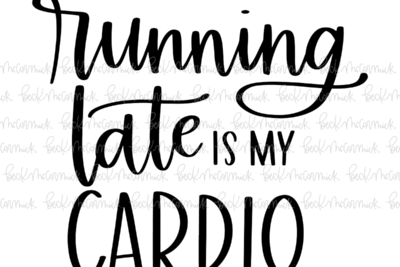 running
late IS MY
CARDIO